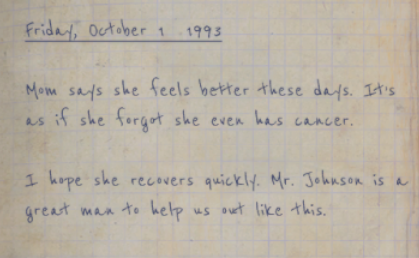 Friday, October 1 1993
Mom says she feels better these days. It's
as if she forgot she even has cancer.
I hope she recovers quickly. Mr. Johnson is a
great man to help us out like this.